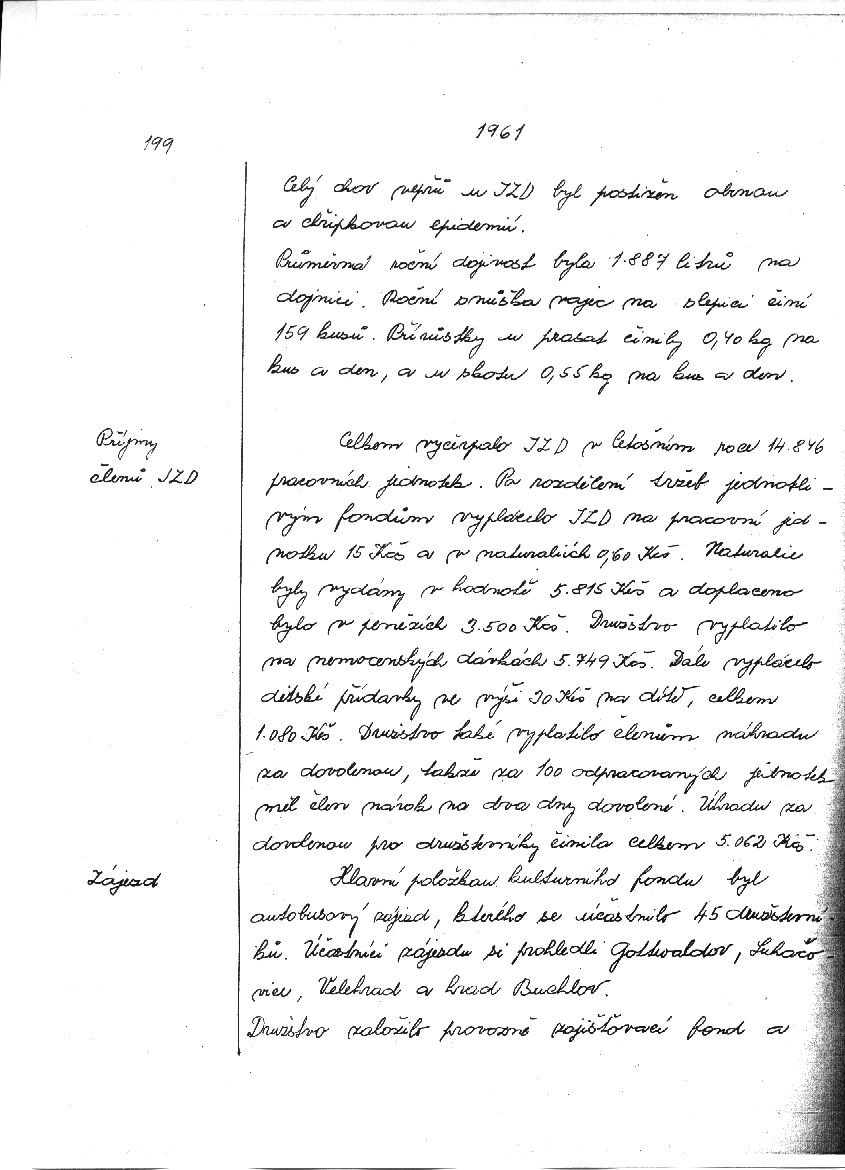 199
1961
Celý chov vepřů u JZD byl postižen obrnou
a chřipkovou epidemií.
Průměrná roční dojivost byla 1.887 litrů na
dojnici. Roční snůška vajec na slepici činí
159 kusů. Přírůstky u prasat činily 0,40 kg na
kus a den, a u skotu 0,55 kg na kus a den.
Příjmy
členů JZD
Celkem vyčerpalo JZD v letošním roce 14.846
pracovních jednotek. Po rozdělení tržeb jednotli-
vým fondům vyplácelo JZD na pracovní jed-
notku 15 Kčs a v naturaliích 0,60 Kčs. Naturalie
byly vydány v hodnotě 5.815 Kčs a doplaceno
bylo v penězích 3.500 Kčs. Družstvo vyplatilo
na nemocenských dávkách 5.749 Kčs. Dále vyplácelo
dětské přídavky ve výši 30 Kčs na dítě, celkem
1.080 Kčs. Družstvo také vyplatilo členům náhradu
za dovolenou, takže za 100 odpracovaných jednotek
měl člen nárok na dva dny dovolené. Úhradu za
dovolenou pro družstevníky činila celkem 5.062 Kčs.
Zájezd
Hlavní položkou kulturního fondu byl
autobusový zájezd, kterého se účastnilo 45 družstevní-
ků. Účastníci zájezdu si prohledli Gottwaldov, Luhačo-
vice, Velehrad a hrad Buchlov.
Družstvo založilo provozně zajišťovací fond a